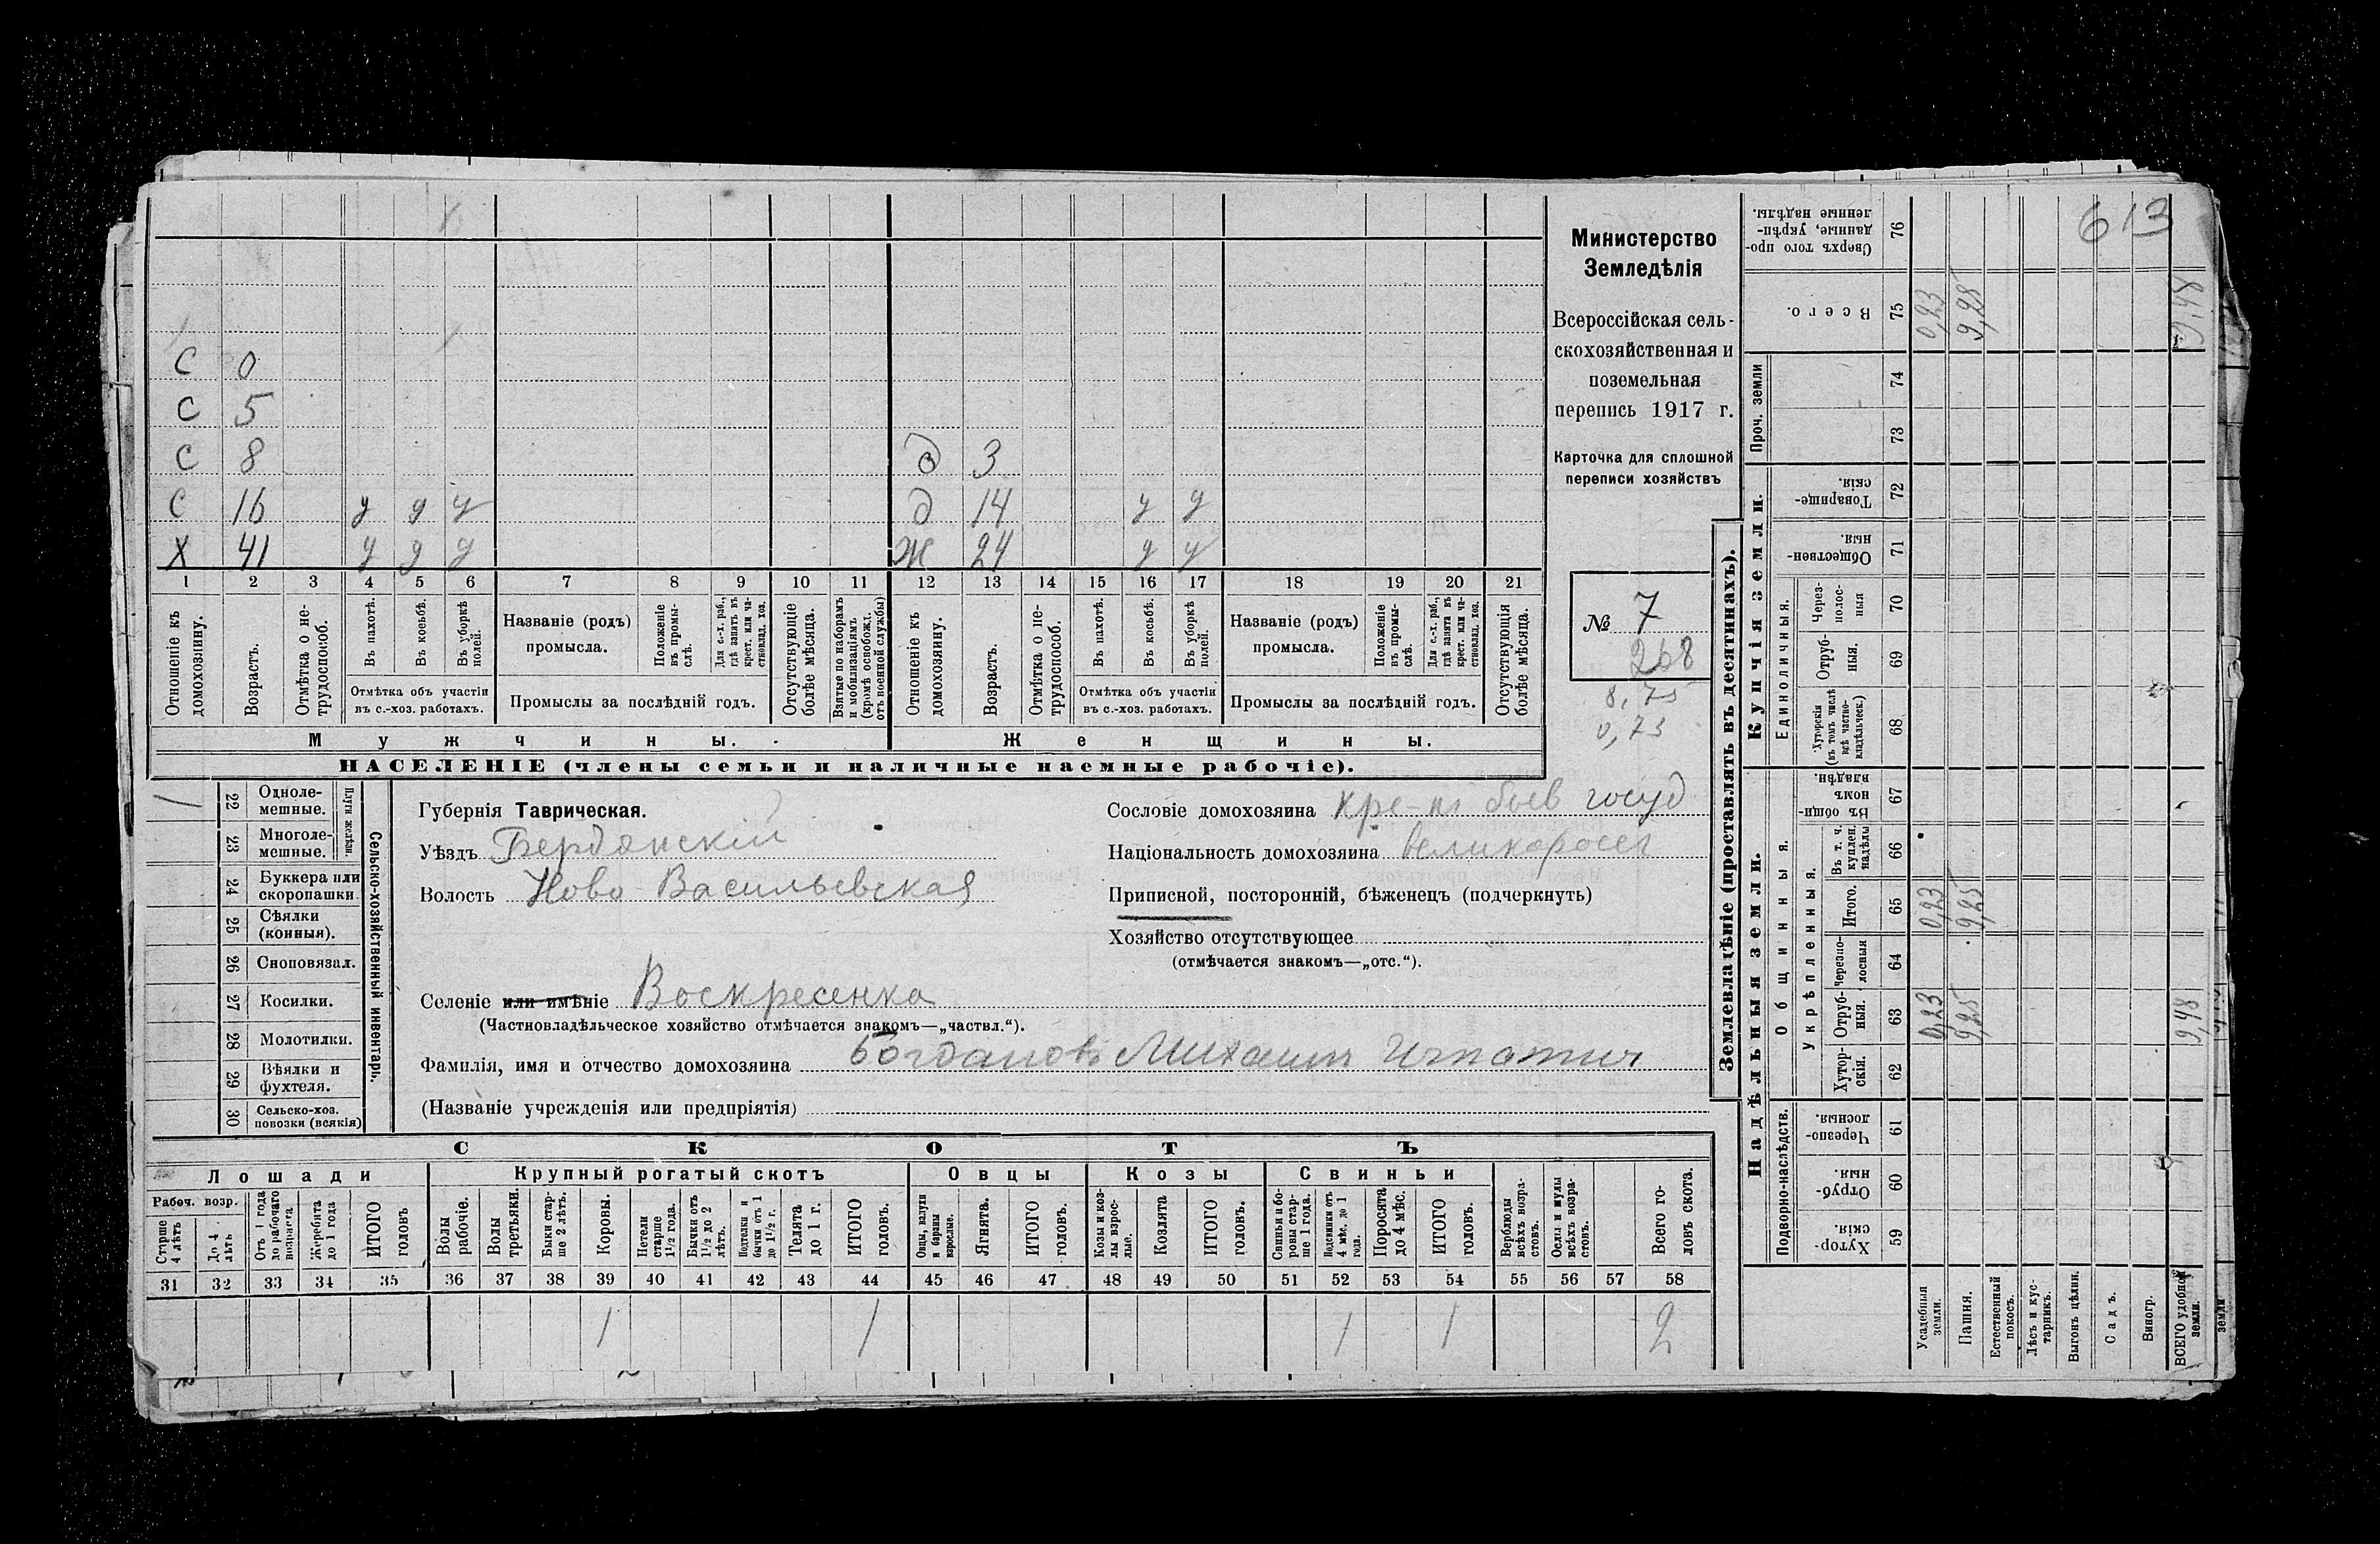 613
С 0
С 5
С 8 д 3
С 16 у у у д 14 у у
Х 41 у у у Ж 24 у у
1 2 3 4 5 6 7 8 9 10 11 12 13 14 15 16 17 18 19 20 21
Отношеніе къ домохозяину.
Возрастъ.
Отмѣтка о нетрудоспособ.
Въ пахотѣ.
Въ косьбѣ.
Въ уборкѣ полей.
Отмѣтка объ участіи
въ с.-хоз. работахъ.
Названіе (родъ)
промысла.
Положеніе въ промыслѣ.
Для с.-х. раб., гдѣ занятъ въ крест. или частновлад. хоз.
Промыслы за послѣдній годъ.
Отсутствующіе болѣе мѣсяца.
Взятые по наборамъ и мобилизаціямъ (кромѣ освобожд. отъ военной службы)
Отношеніе къ домохозяину.
Возрастъ.
Отмѣтка о нетрудоспособ.
Въ пахотѣ.
Въ косьбѣ.
Въ уборкѣ полей.
Отмѣтка объ участіи
въ с.-хоз. работахъ.
Названіе (родъ)
промысла.
Положеніе въ промыслѣ.
Для с.-х. раб., гдѣ занята въ крест. или частновлад. хоз.
Промыслы за послѣдній годъ.
Отсутствующія болѣе мѣсяца.
Мужчины. Женщины.
НАСЕЛЕНІЕ (члены семьи и наличные наемные рабочіе).
Министерство
Земледѣлія
Всероссійская сель-
скохозяйственная и
поземельная
перепись 1917 г.
Карточка для сплошной
переписи хозяйствъ
№ 7
268
8,75
0,73
1 22 Одноле-
мешные.
23 Многоле-
мешные.
Плуги желѣзн.
24 Буккера или
скоропашки
25 Сѣялки
(конныя).
26 Сноповязал.
27 Косилки.
28 Молотилки.
29 Вѣялки и
фухтеля.
30 Сельско-хоз.
повозки (всякія)
Сельско-хозяйственный инвентарь.
Губернія Таврическая.
Уѣздъ Бердянскій
Волость Ново-Васильевская
Селеніе или имѣніе Воскресенка
(Частновладѣльческое хозяйство отмѣчается знакомъ—„частвл.“).
Фамилія, имя и отчество домохозяина Богдановъ Михаилъ Игнатич
(Названіе учрежденія или предпріятія)
Сословіе домохозяина кре-нъ быв госуд
Національность домохозяина великоросс
Приписной, посторонній, бѣженецъ (подчеркнуть)
Хозяйство отсутствующее
(отмѣчается знакомъ—„отс.“).
СКОТЪ
Лошади Крупный рогатый скотъ Овцы Козы Свиньи
Рабоч. возр.
Старше 4 лѣтъ
До 4 лѣтъ
Отъ 1 года до рабочаго возраста
Жеребята до 1 года
ИТОГО головъ
Волы рабочіе.
Волы третьяки.
Быки старше 2 лѣтъ.
Коровы.
Нетели старше 1½ года.
Бычки отъ 1½ до 2 лѣтъ.
Подтелки и бычки отъ 1 до 1½ г.
Телята до 1 г.
ИТОГО головъ.
Овцы, валухи и бараны взрослые.
Ягнята.
ИТОГО головъ.
Козы и козлы взрослые.
Козлята
ИТОГО головъ.
Свиньи и боровы старше 1 года.
Подсвинки отъ 4 мѣс. до 1 года.
Поросята до 4 мѣс.
ИТОГО головъ.
Верблюды всѣхъ возрастовъ.
Ослы и мулы всѣхъ возрастовъ.
Всего головъ скота.
31 32 33 34 35 36 37 38 39 40 41 42 43 44 45 46 47 48 49 50 51 52 53 54 55 56 57 58
1 1 1 1 2
Землевладѣніе (проставлять въ десятинахъ).
Надѣльныя земли. Купчія земли. Проч. земли
Подворно-наслѣдств. Общинныя. Единоличныя.
Укрѣпленныя.
Сверхъ того проданные, укрѣпленные надѣлы. 76
Всего. 75 0,23 9,25 9,48
74
73
Товарищескія. 72
Общественныя. 71
Черезполосныя 70
Отрубныя. 69
Хуторскія (въ томъ числѣ всѣ частновладѣльческ.) 68
Въ общинномъ владѣн. 67
Въ т. ч. куплен. надѣлы 66
Итого. 65 0,23 9,25
Черезполосныя 64
Отрубныя. 63 0,23 9,25 9,48
Хуторскія. 62
Черезполосныя. 61
Отрубныя. 60
Хуторскія. 59
Усадебныя земли.
Пашня.
Естественный покосъ.
Лѣсъ и кустарникъ.
Выгонъ цѣлин.
Садъ.
Виногр.
ВСЕГО удобной земли.
земли